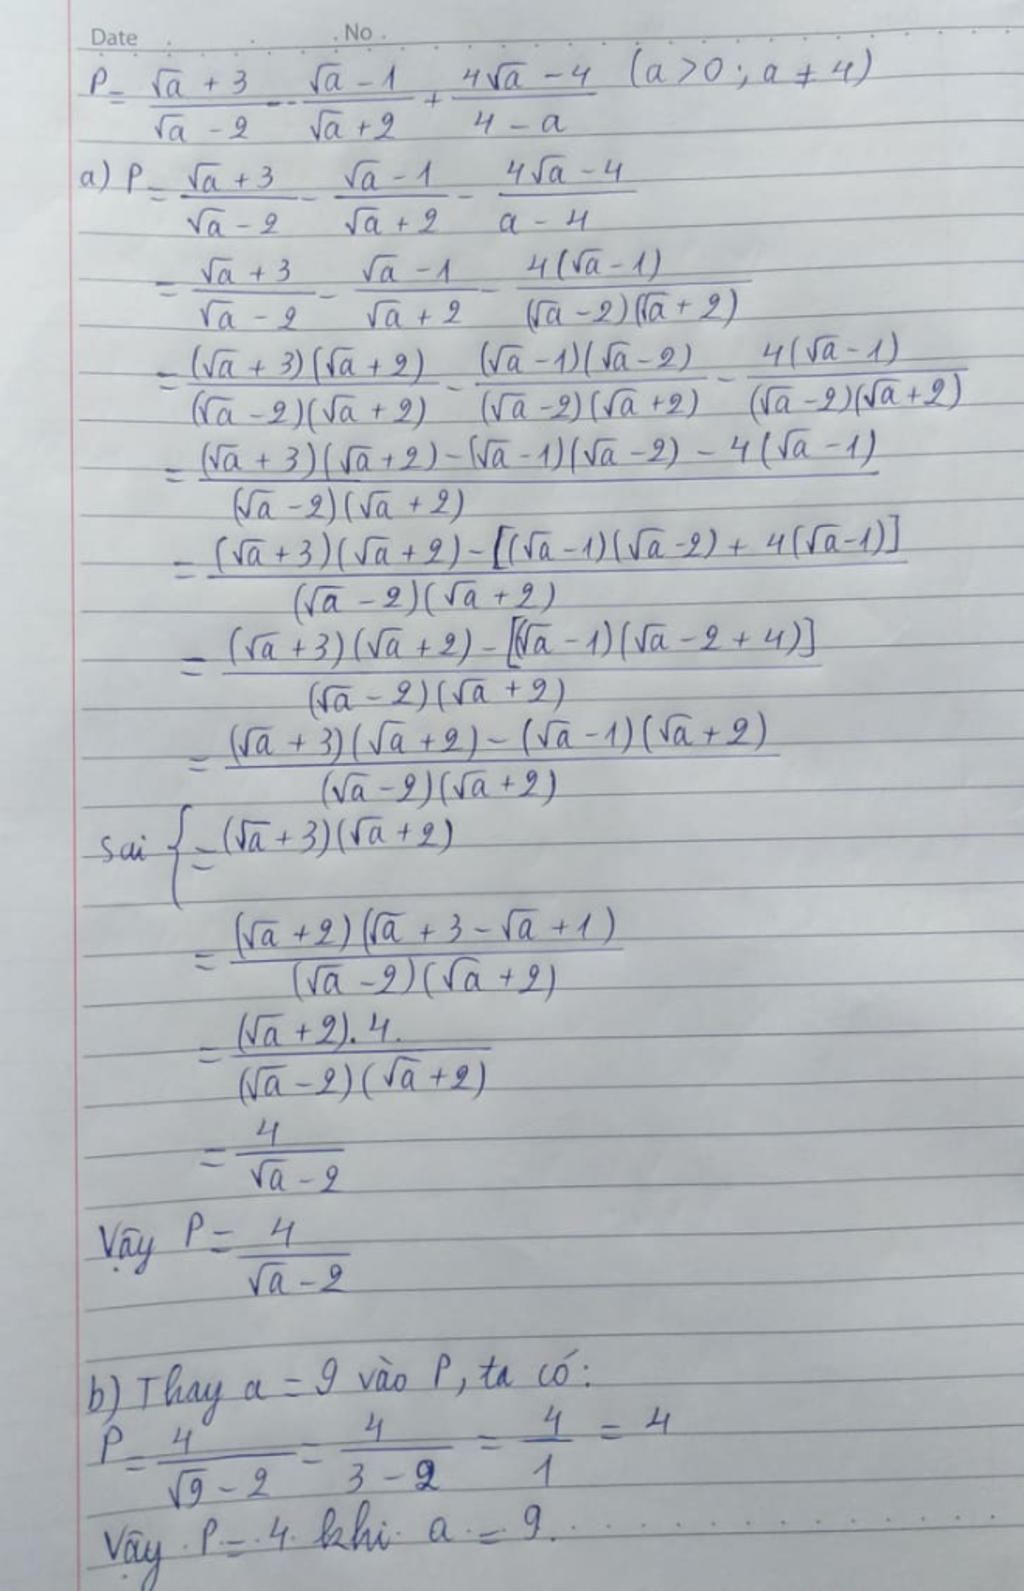 Date No.
P = (√a + 3)/(√a - 2) - (√a - 1)/(√a + 2) + (4√a - 4)/(4 - a) (a > 0 ; a ≠ 4)
a) P = (√a + 3)/(√a - 2) - (√a - 1)/(√a + 2) - (4√a - 4)/(a - 4)
= (√a + 3)/(√a - 2) - (√a - 1)/(√a + 2) - 4(√a - 1)/((√a - 2)(√a + 2))
= (√a + 3)(√a + 2)/((√a - 2)(√a + 2)) - (√a - 1)(√a - 2)/((√a - 2)(√a + 2)) - 4(√a - 1)/((√a - 2)(√a + 2))
= ((√a + 3)(√a + 2) - (√a - 1)(√a - 2) - 4(√a - 1))/((√a - 2)(√a + 2))
= ((√a + 3)(√a + 2) - [(√a - 1)(√a - 2) + 4(√a - 1)])/((√a - 2)(√a + 2))
= ((√a + 3)(√a + 2) - [(√a - 1)(√a - 2 + 4)])/((√a - 2)(√a + 2))
= ((√a + 3)(√a + 2) - (√a - 1)(√a + 2))/((√a - 2)(√a + 2))
Sai { = (√a + 3)(√a + 2)
= (√a + 2)(√a + 3 - √a + 1)/((√a - 2)(√a + 2))
= (√a + 2). 4/((√a - 2)(√a + 2))
= 4/(√a - 2)
Vậy P = 4/(√a - 2)
b) Thay a = 9 vào P, ta có:
P = 4/(√9 - 2) = 4/(3 - 2) = 4/1 = 4
Vậy P = 4 khi a = 9.